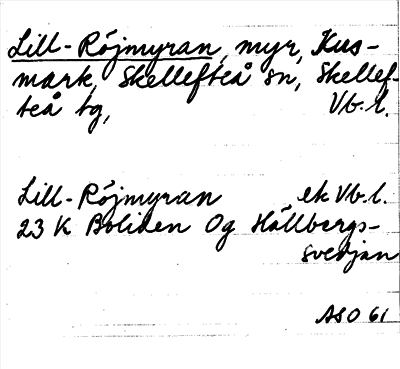 Lill-Röjmyran, myr, Kus-
mark, Skellefteå sn, Skellef-
teå tg, Vb. l.
Lill-Röjmyran ek Vb. l.
23 K Boliden Og Hällbergs-
svedjan
ASO 61